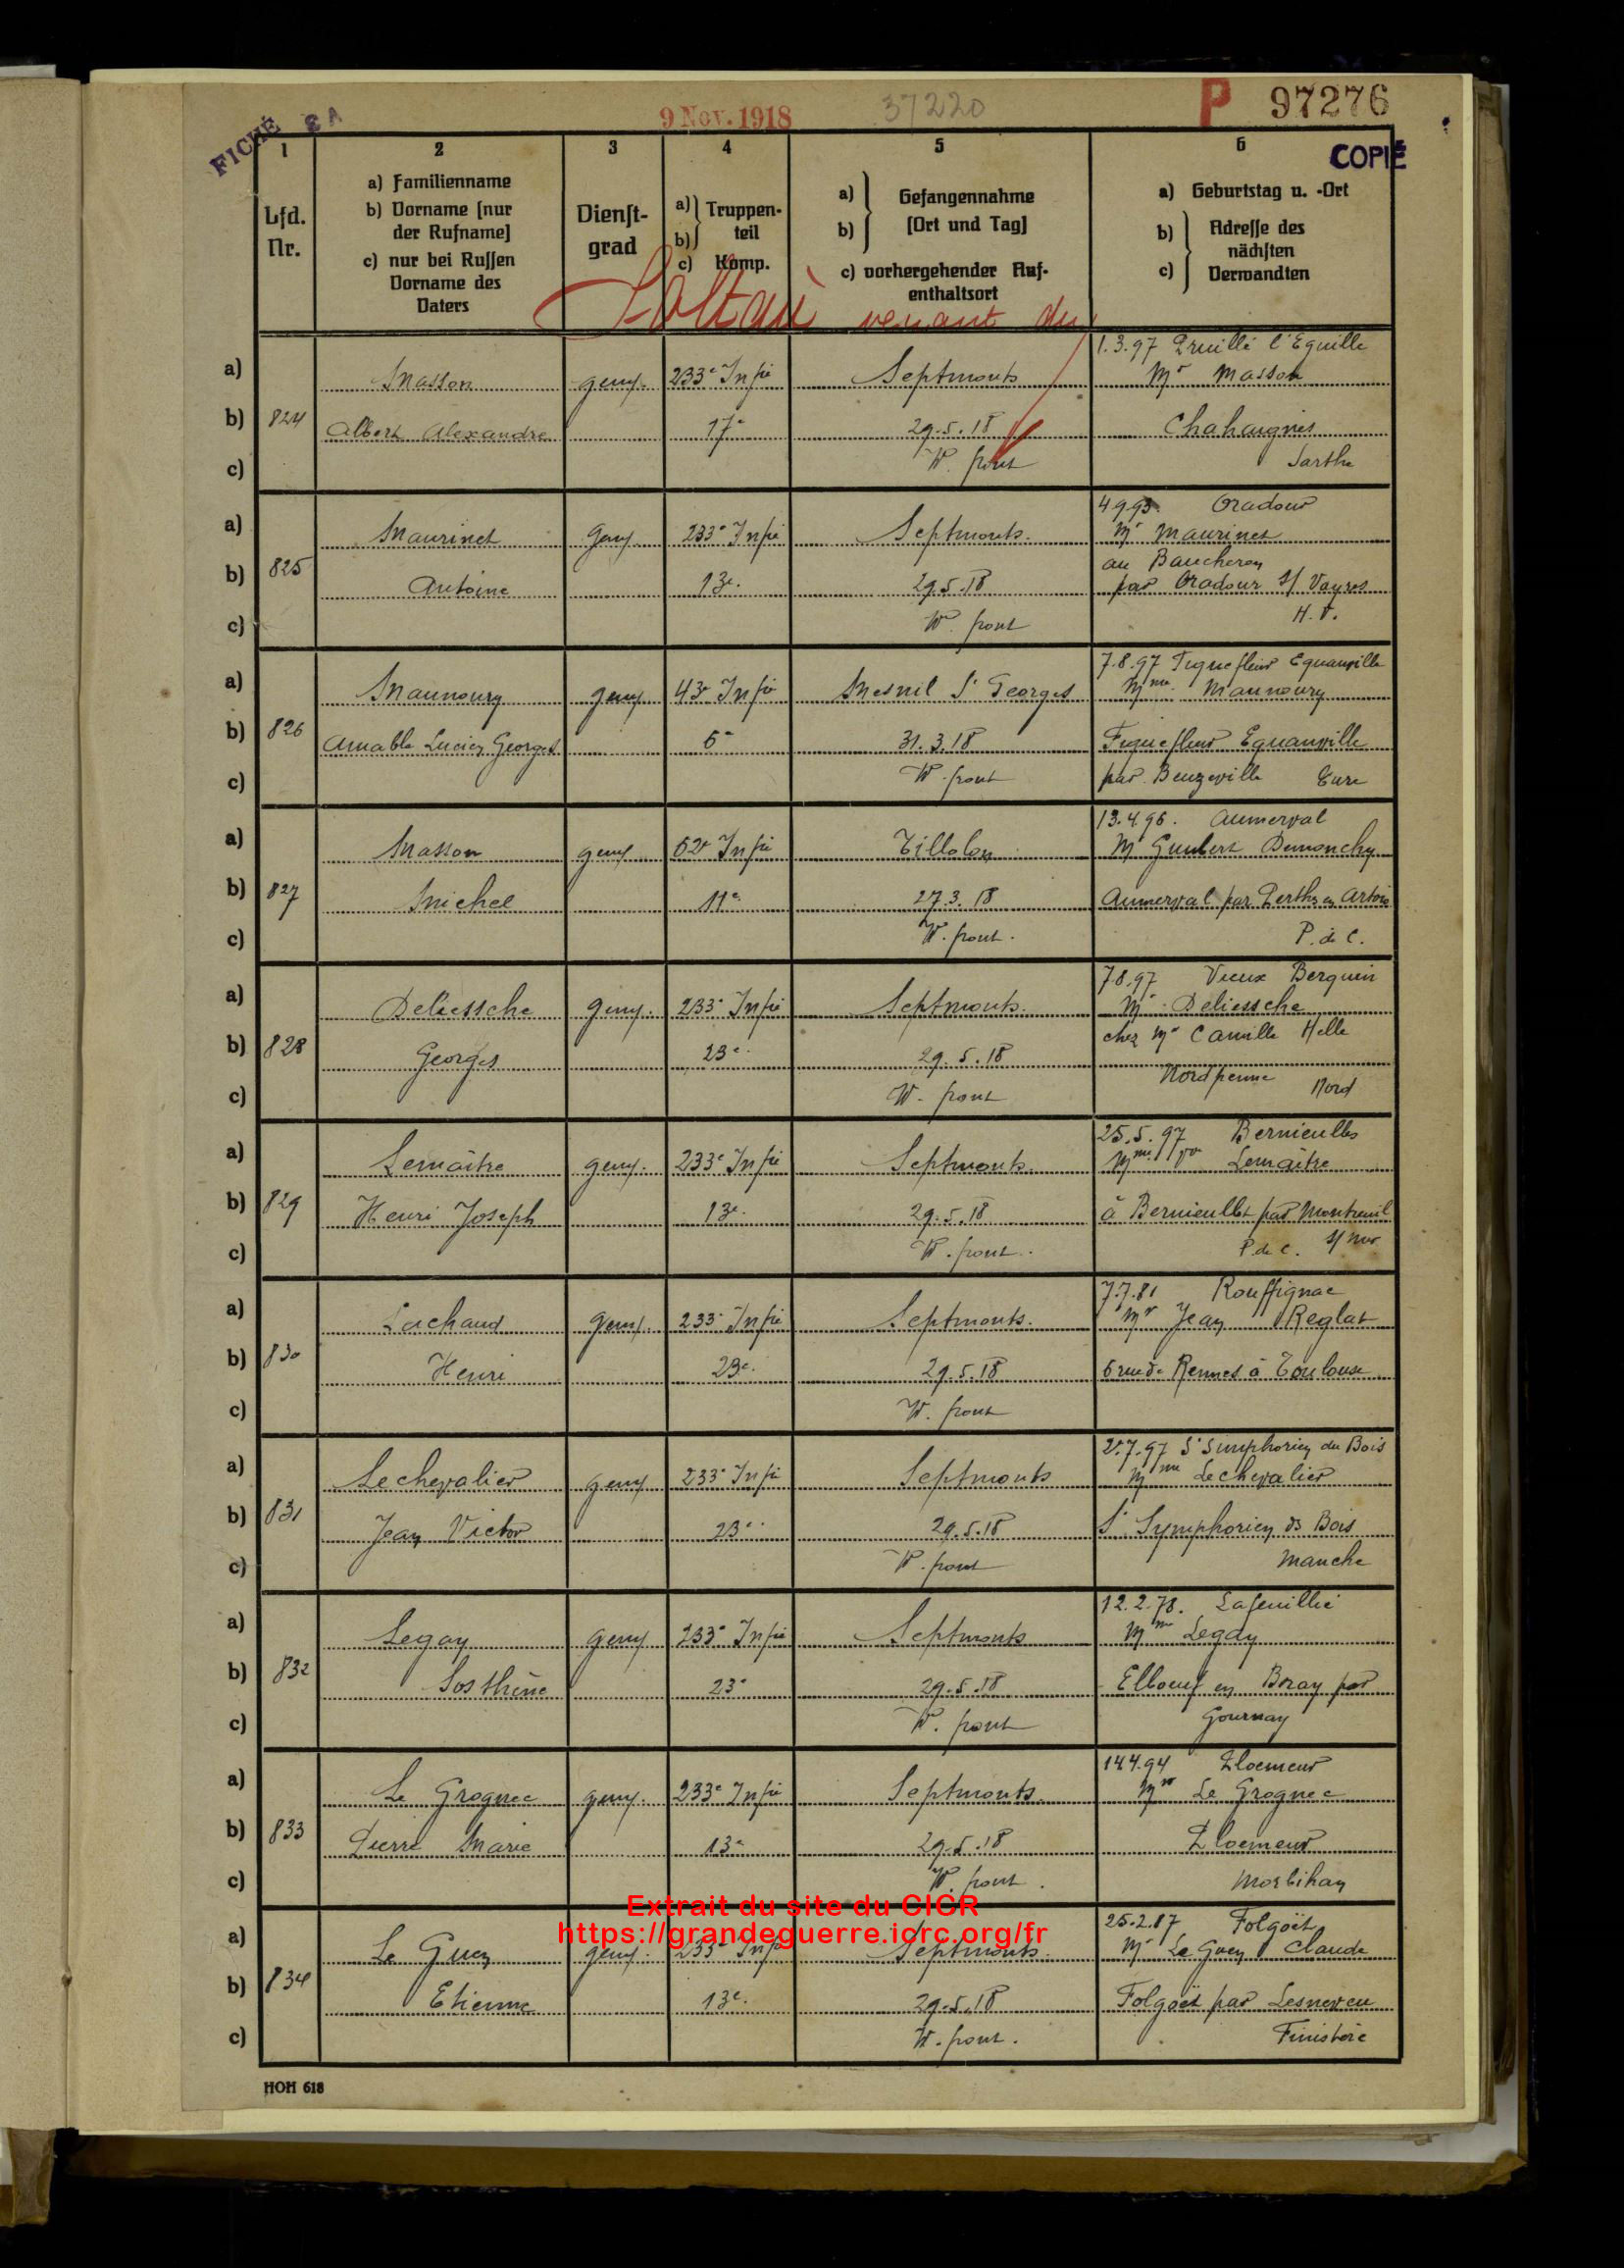 FICHÉ
9 Nov. 1918
37220
P 97276
COPIÉ
1 2 3 4 5 6
Lfd. Nr.
a) Familienname
b) Vorname [nur
der Rufname]
c) nur bei Russen
Vorname des
Vaters
Dienst-
grad
a) Truppen-
b) teil
c) Komp.
a) Gefangennahme
b) [Ort und Tag]
c) vorhergehender Auf-
enthaltsort
a) Geburtstag u. -Ort
b) Adresse des
nächsten
c) Verwandten
Soltau venant du
a)
b)
c)
824
Masson
Albert Alexandre
gem.
233e Infie
17e
Septmonts
29.5.18
W. front
1.3.97 Pruillé l'Eguille
Mr Masson
Chahaignes
Sarthe
a)
b)
c)
825
Maurinet
Antoine
gem.
233e Infie
13e.
Septmonts.
29.5.18
W. front
4 9.93. Oradour
Mr Maurinet
au Baucheron
par Oradour s/ Vayres
H.V.
a)
b)
c)
826
Maunoury
Amable Lucien Georges
gem.
43e Infie
6e
Mesnil St Georges
31.3.18
W. front
7.8.97 Fiquefleur Equainville
Mme Maunoury
Fiquefleur Equainville
par Beuzeville Eure
a)
b)
c)
827
Masson
Michel
gem.
Infie
11e
Tilloloy
27.3.18
W. front.
13.4.96. Aumerval
Mr Demonchy
Aumerval par Perthes en Artois
P. de C.
a)
b)
c)
828
Deliessche
Georges
gem.
233e Infie
23e.
Septmonts.
29.5.18
W. front
7.8.97 Vieux Berquin
Mr Deliessche
chez Mr Camille Helle
Nordpenne Nord
a)
b)
c)
829
Lemaître
Henri Joseph
gem.
233e Infie
13e.
Septmonts.
29.5.18
W. front.
25.5.97 Bernieulles
Mme Vve Lemaître
à Bernieulles par Montreuil
P. de C. s/ Mer
a)
b)
c)
830
Lachaud
Henri
gem.
233e Infie
23e.
Septmonts.
29.5.18
W. front
7.7.81 Rouffignac
Mr Jean Reglat
6 rue de Rennes à Toulouse
a)
b)
c)
831
Lechevalier
Jean Victor
gem
233e Infie
23e
Septmonts
29.5.18
W. front
2.7.97 St Simphorien du Bois
Mme Lechevalier
St Symphorien ds Bois
Manche
a)
b)
c)
832
Legay
Sosthène
gem
233e Infie
23e
Septmonts
29.5.18
W. front
12.2.78. Lafeuillie
Mme Legay
Elbeuf en Bray par
Gournay
a)
b)
c)
833
Le Grognec
Pierre Marie
gem.
233e Infie
13e
Septmonts.
29.5.18
W. front.
14.4.94 Ploemeur
Le Grognec
Ploemeur
Morbihan
Extrait du site du CICR
https://grandeguerre.icrc.org/fr
a)
b)
c)
834
Le Guen
Etienne
gem.
233e Infie
13e.
Septmonts.
29.5.18
W. front.
25.2.87 Folgoët
Mr Le Guen Claude
Folgoët par Lesneven
Finistère
HOH 618